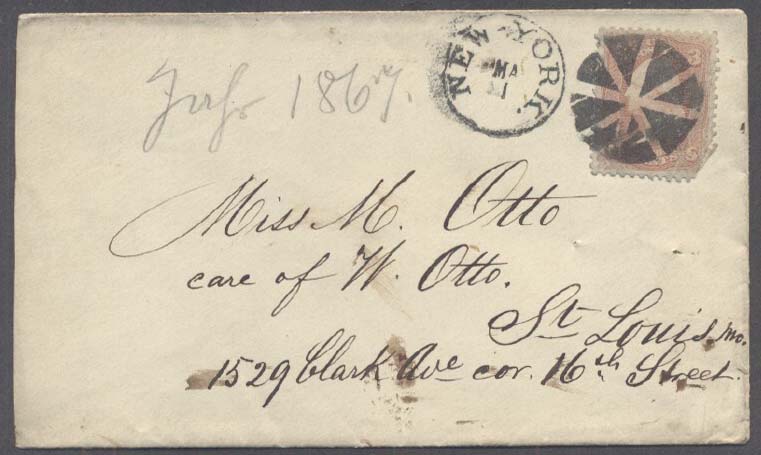 1867.
NEW YORK.
MA
Miss M. Otto
care of W. Otto.
St Louis Mo.
1529 Clark Ave cor. 16th Street.